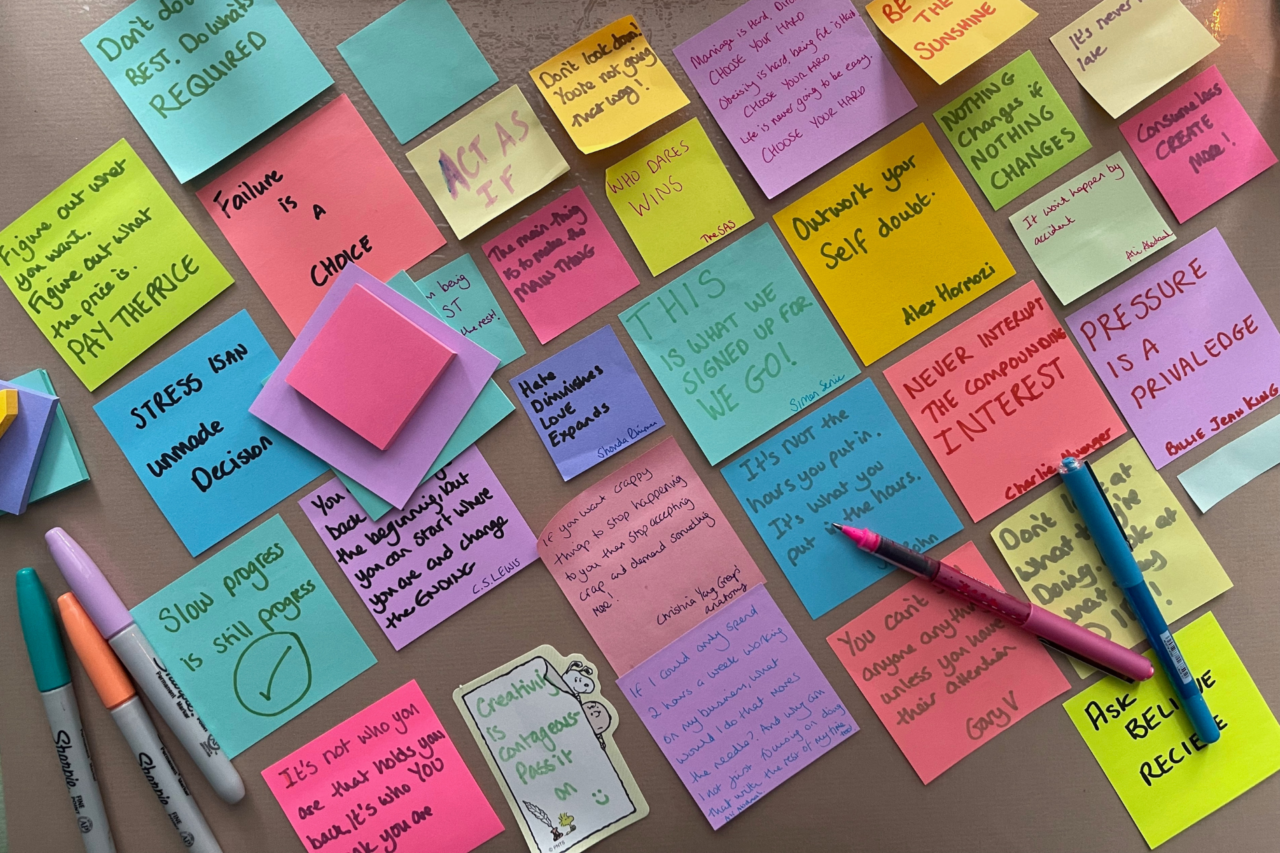 Don't do
BEST. Do what's
REQUIRED
Don't look down!
You're not going
that way!
Marriage is Hard. Divo
CHOOSE YOUR HARD
Obesity is hard, being fit is Hard
CHOOSE YOUR HARD
Life is never going to be easy.
CHOOSE YOUR HARD
BE
THE
SUNSHINE
It's never
late
Figure out what
you want.
Figure out what
the price is.
PAY THE PRICE
Failure
is
A
CHOICE
ACT AS
IF
WHO DARES
WINS
The SAS
NOTHING
Changes if
NOTHING
CHANGES
Consume less
CREATE
More!
The main thing
is to make the
MAIN THING
Outwork your
Self doubt.
Alex Hormozi
It won't happen by
accident
being
ST
the rest!
THIS
IS WHAT WE
SIGNED UP FOR
WE GO!
PRESSURE
IS A
PRIVALEDGE
BILLIE JEAN KING
STRESS IS AN
unmade
Decision
Hate
Diminishes
LOVE
Expands
Shonda Rhimes
NEVER INTERUPT
THE COMPOUNDING
INTEREST
Charlie
You
back
the beginning, but
you can start where
you are and change
the ENDING
C.S. LEWIS
If you want crappy
things to stop happening
to you then stop accepting
crap and demand something
MORE!
Christina Yang Greys
anatomy
It's NOT the
hours you put in.
It's what you
put in the hours.
John
Don't at
what
Doing. at
Slow progress
is still progess
If I could only spend
2 hours a week working
on my business, what
would I do that moves
the needle? And why am
I not just Busy on doing
that with the rest of my time
You can't
anyone anything
unless you have
their attention
Gary V
Ask
BELIEVE
RECIEVE
It's not who you
are that holds you
back. It's who YOU
you are
Creativity
is
contageous-
Pass it
on
Sharpie
Sharpie
Sharpie
FINE